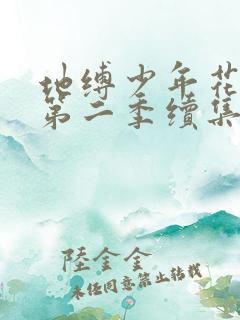 地缚少年花
第二季续集
陸金金
未经同意禁止转载